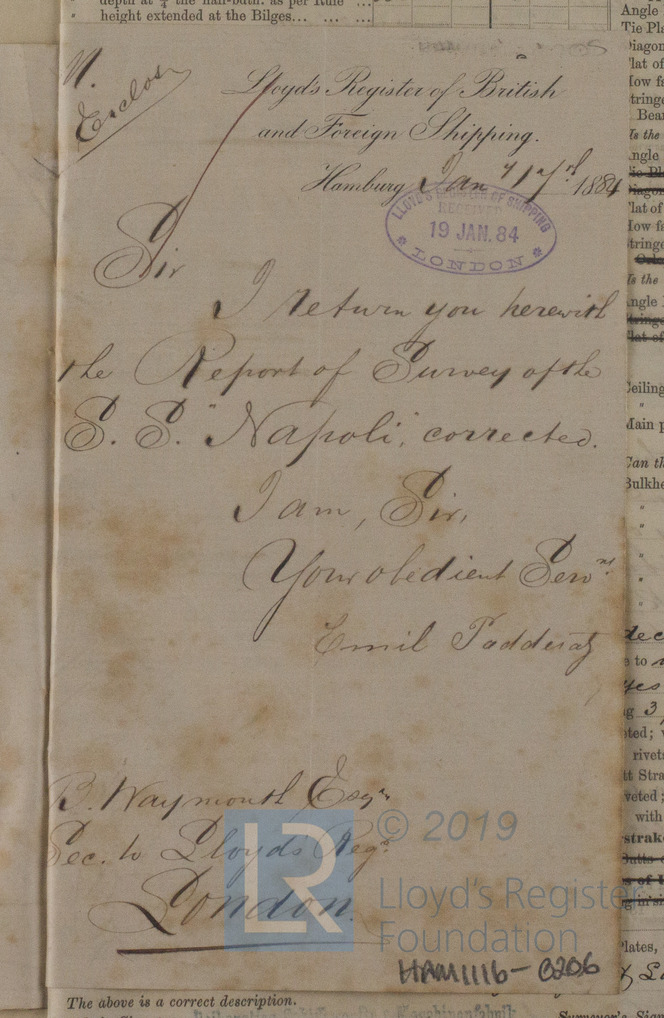 depth at ¾ the half-bdth. as per Rule ...
" height extended at the Bilges... ... ...
Enclos
Lloyd's Register of British
and Foreign Shipping.
Hamburg Jan 17 1884
LLOYD'S REGISTER OF SHIPPING
RECEIVED
19 JAN. 84
LONDON
Sir
I return you herewith
the Report of Survey of the
S. S. "Napoli", corrected.
I am, Sir,
Your obedient Servnt
Emil Padderatz
B. Waymouth Esqre
Sec. to Lloyds Regr
London.
LR
© 2019
Lloyd's Register
Foundation
HAM1116-0206
The above is a correct description.
Angle
Tie Pla
Diagon
Flat of
How fa
Stringe
Bear
Is the
Angle
Flat of
How fa
Stringe
Is the
Angle
Ceiling
"
Main p
Can th
Bulkhe
"
"
"
"
"
e to
yes
ng 3,
ted;
rivets
tt Stra
veted;
with
strake
Plates,
Surveyor's Sign